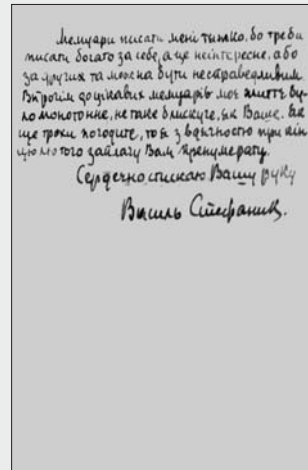 Мемуари писати мені тяжко, бо треба
писати богато за себе, а це неінтересне, або
за других та можна бути несправедливим.
Впрочім до цікавих мемуарів моє життє бу-
ло монотонне, не таке блискуче, як Ваше. Як
ще трохи погодите, то я з вдячностю при кін
цю лютого заплачу Вам пренумерату.
Сердечно стискаю Вашу руку
Василь Стефаник.